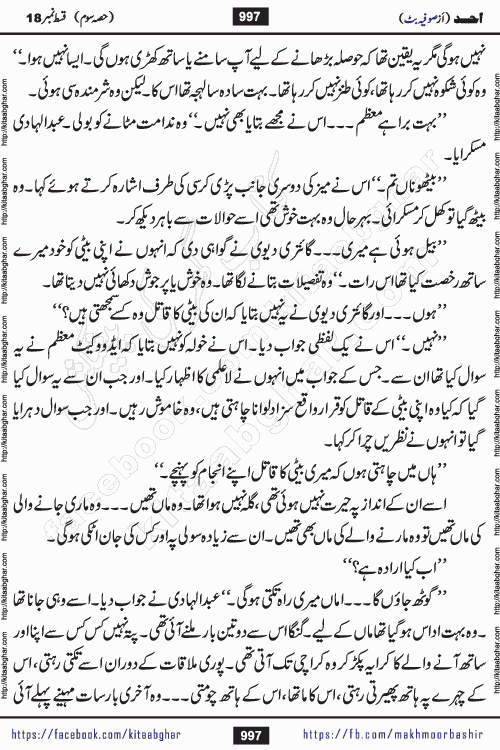 احمد (از صوفیہ بٹ) 997 (حصہ سوم) قسط نمبر 18
نہیں ہو گی مگر یہ یقین تھا کہ حوصلہ بڑھانے کے لیے آپ سامنے یا ساتھ کھڑی ہوں گی۔ ایسا نہیں ہوا۔‘‘
وہ کوئی شکوہ نہیں کر رہا تھا، کوئی طنز نہیں کر رہا تھا۔ بہت سادہ سا لہجہ تھا اس کا۔ لیکن وہ شرمندہ سی ہوئی۔
’’بہت برا ہے معظم ۔۔۔ اس نے مجھے بتایا بھی نہیں۔‘‘ وہ ندامت مٹانے کو بولی۔ عبدالہادی
مسکرایا۔
’’بیٹھو ناں تم۔‘‘ اس نے میز کی دوسری جانب پڑی کرسی کی طرف اشارہ کرتے ہوئے کہا۔ وہ
بیٹھ گیا تو کھل کر مسکرائی۔ بہر حال وہ بہت خوش تھی اسے حوالات سے باہر دیکھ کر۔
’’بیل ہوئی ہے میری۔۔۔ گائتری دیوی نے گواہی دی کہ انہوں نے اپنی بیٹی کو خود میرے
ساتھ رخصت کیا تھا اس رات۔‘‘ وہ تفصیلات بتانے لگا تھا۔ وہ خوش یا پر جوش دکھائی نہیں دیتا تھا۔
’’ہوں ۔۔۔ اور گائتری دیوی نے یہ نہیں بتایا کہ ان کی بیٹی کا قاتل وہ کسے سمجھتی ہیں؟‘‘
’’نہیں۔‘‘ اس نے یک لفظی جواب دیا۔ اس نے خولہ کو نہیں بتایا کہ ایڈووکیٹ معظم نے یہ
سوال کیا تھا ان سے۔ جس کے جواب میں انہوں نے لاعلمی کا اظہار کیا۔ اور جب ان سے یہ سوال کیا
گیا کہ کیا وہ اپنی بیٹی کے قاتل کو قرار واقع سزا دلوانا چاہتی ہیں، وہ خاموش رہیں۔ اور جب سوال دہرایا
گیا تو انہوں نے نظریں چرا کر کہا۔
’’ہاں میں چاہتی ہوں کہ میری بیٹی کا قاتل اپنے انجام کو پہنچے۔‘‘
اسے ان کے انداز پہ حیرت نہیں ہوئی تھی، گلہ نہیں ہوا تھا۔ وہ ماں تھیں ۔۔۔ وہ ماری جانے والی
کی ماں تھیں تو وہ مارنے والے کی ماں بھی تھیں۔ ان سے زیادہ سولی پہ اور کس کی جان اٹکی ہو گی۔
’’اب کیا ارادہ ہے؟‘‘
’’گوٹھ جاؤں گا ۔۔۔ اماں میری راہ تکتی ہو گی۔‘‘ عبدالہادی نے جواب دیا۔ اسے وہی جانا تھا
۔ وہ بہت اداس ہو گیا تھا ماں کے لیے۔ گنگا اس سے دو تین بار ملنے آئی تھی۔ پتہ نہیں کس کس سے اپنا اور
ساتھ آنے والے کا کرایہ پکڑ کر وہ کراچی تک آتی تھی۔ پوری ملاقات کے دوران اسے تکتی رہتی، اس
کے چہرے پہ ہاتھ پھیرتی رہتی، اس کا ماتھا، اس کے ہاتھ چومتی ۔۔۔ وہ آخری بار سات مہینے پہلے آئی
https://facebook.com/kitaabghar 997 https://fb.com/makhmoorbashir